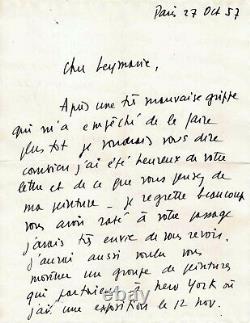 Paris 27 Oct 57
Cher Leymarie,
Après une très mauvaise grippe
qui m'a empêché de le faire
plus tôt je voudrais vous dire
combien j'ai été heureux de votre
lettre et de ce que vous pensez de
ma peinture - je regrette beaucoup
vous avoir raté à votre passage
j'avais très envie de vous revoir.
j'aurai aussi voulu vous
montrer un groupe de peintures
qui partaient à New York où
j'ai une exposition le 12 nov.